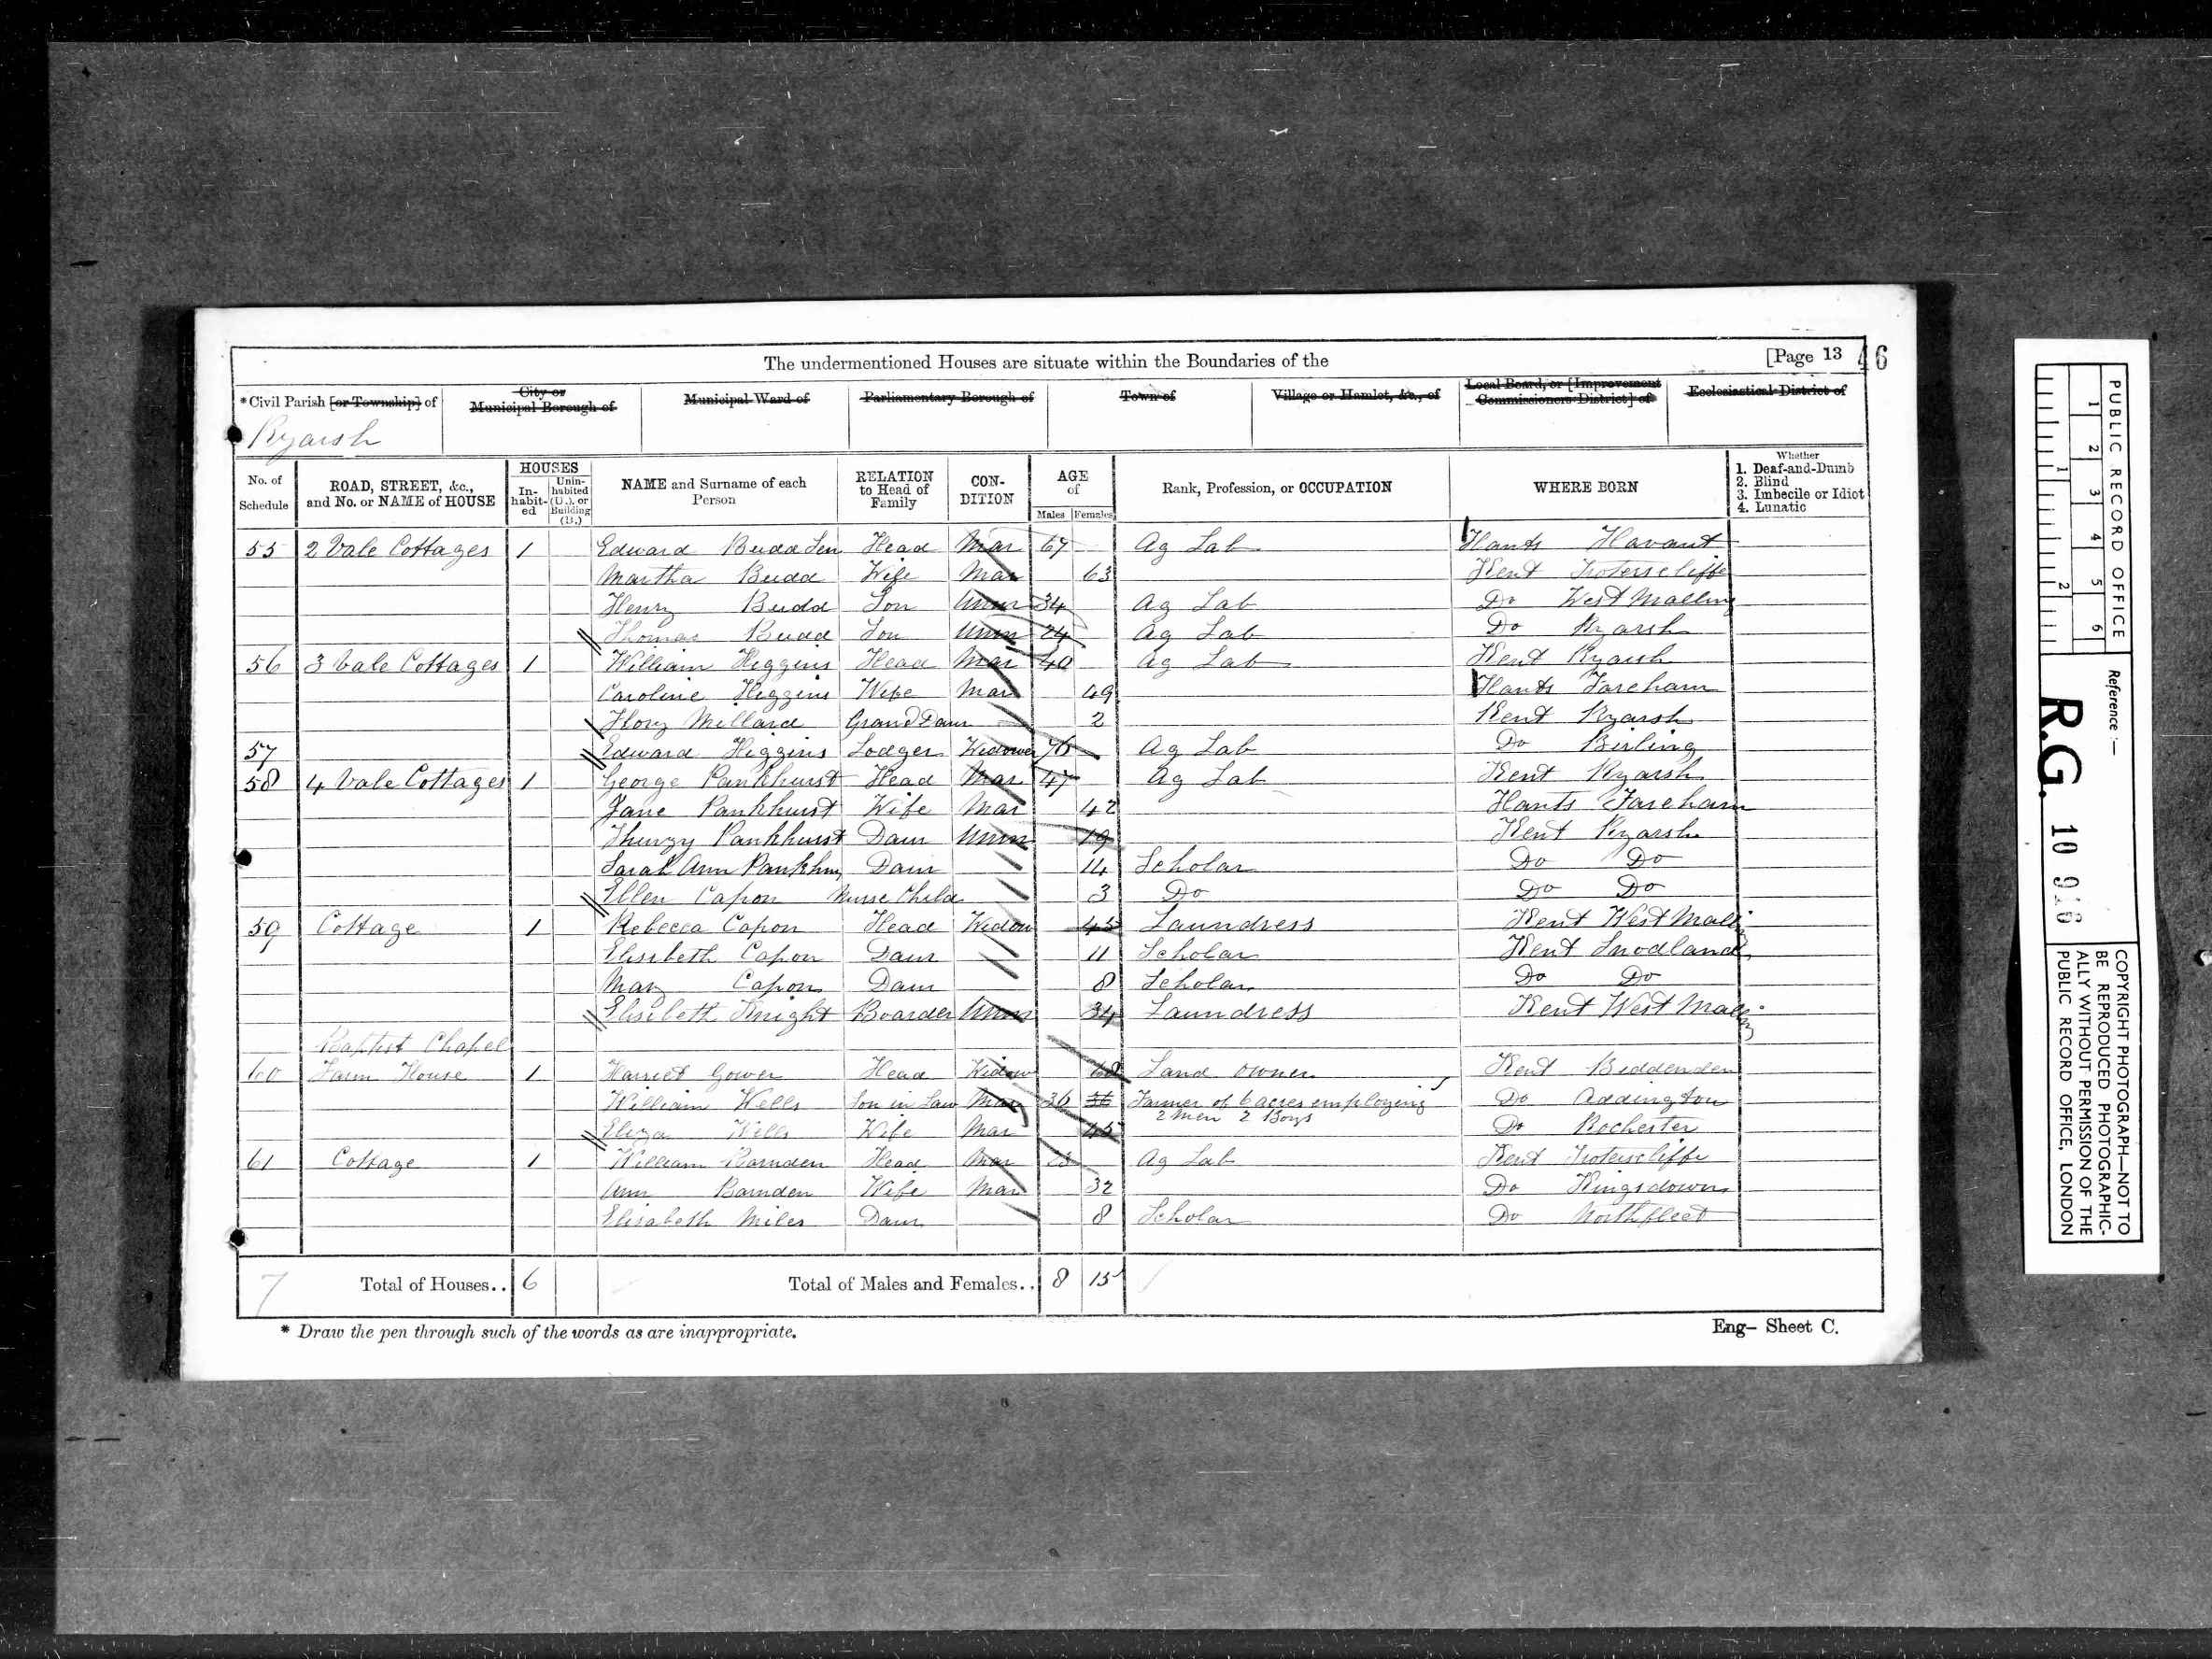 The undermentioned Houses are situate within the Boundaries of the [Page 13 46
*Civil Parish [or Township] of City or Municipal Borough of Municipal Ward of Parliamentary Borough of Town of Village or Hamlet, &c., of Local Board, or [Improvement Commissioners District] of Ecclesiastical District of
Ryarsh
No. of Schedule ROAD, STREET, &c., and No. or NAME of HOUSE HOUSES In-habit-ed Unin-habited (U.), or Building (B.) NAME and Surname of each Person RELATION to Head of Family CON-DITION AGE of Males Females Rank, Profession, or OCCUPATION WHERE BORN Whether 1. Deaf-and-Dumb 2. Blind 3. Imbecile or Idiot 4. Lunatic
55 2 Vale Cottages 1 Edward Budd Sen Head Mar 67 Ag Lab Hants Havant
Martha Budd Wife Mar 63 Kent Troterscliffe
Henry Budd Son Unm 34 Ag Lab Do West Malling
Thomas Budd Son Unm 24 Ag Lab Do Ryarsh
56 3 Vale Cottages 1 William Higgins Head Mar 40 Ag Lab Kent Ryarsh
Caroline Higgins Wife Mar 49 Hants Fareham
Flory Millard Grand Daur 2 Kent Ryarsh
57 Edward Higgins Lodger Widower 76 Ag Lab Do Birling
58 4 Vale Cottages 1 George Pankhurst Head Mar 47 Ag Lab Kent Ryarsh
Jane Pankhurst Wife Mar 42 Hants Fareham
Thurzy Pankhurst Daur Unm 19 Kent Ryarsh
Sarah Ann Pankhurs Daur 14 Scholar Do Do
Ellen Capon Nurse Child 3 Do Do Do
59 Cottage 1 Rebecca Capon Head Widow 45 Laundress Kent West Malling
Elisebeth Capon Daur 11 Scholar Kent Snodland
Mary Capon Daur 8 Scholar Do Do
Elisebeth Knight Boarder Unm 34 Laundress Kent West Malling
Baptist Chapel
60 Farm House 1 Harriet Gower Head Widow 68 Land owner Kent Biddenden
William Wells Son in Law Mar 36 36 Farmer of 6 acres employing Do Addington
2 Men 2 Boys
Eliza Wells Wife Mar 45 Do Rochester
61 Cottage 1 William Bamden Head Mar 23 Ag Lab Kent Troterscliffe
Ann Bamden Wife Mar 32 Do Kingsdown
Elisabeth Miles Daur 8 Scholar Do Northfleet
7 Total of Houses.. 6 Total of Males and Females.. 8 15
* Draw the pen through such of the words as are inappropriate. Eng- Sheet C.
PUBLIC RECORD OFFICE
1 2 3 4 5 6
1 2
Reference :—
R.G. 10 916
COPYRIGHT PHOTOGRAPH—NOT TO
BE REPRODUCED PHOTOGRAPHIC-
ALLY WITHOUT PERMISSION OF THE
PUBLIC RECORD OFFICE, LONDON